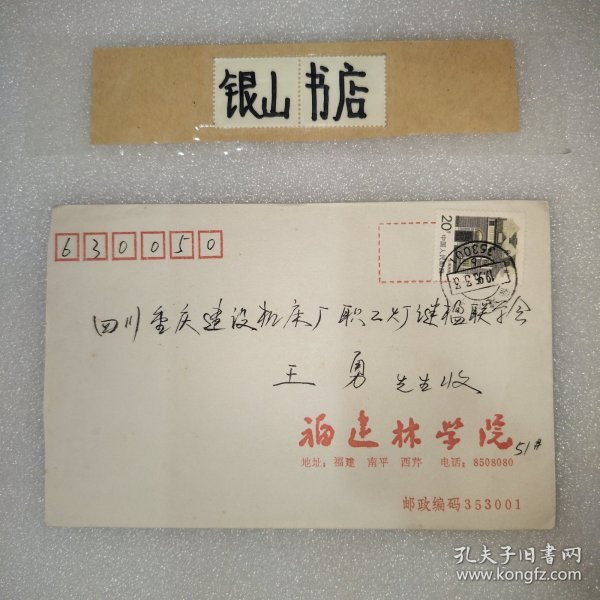 银山书店
630050
20分
中国人民邮政
353001
四川重庆建设机床厂职工灯谜楹联学会
王勇 先生收
福建林学院 51#
地址：福建 南平 西芹 电话：8508080
邮政编码353001
孔夫子旧书网
www.kongfz.com